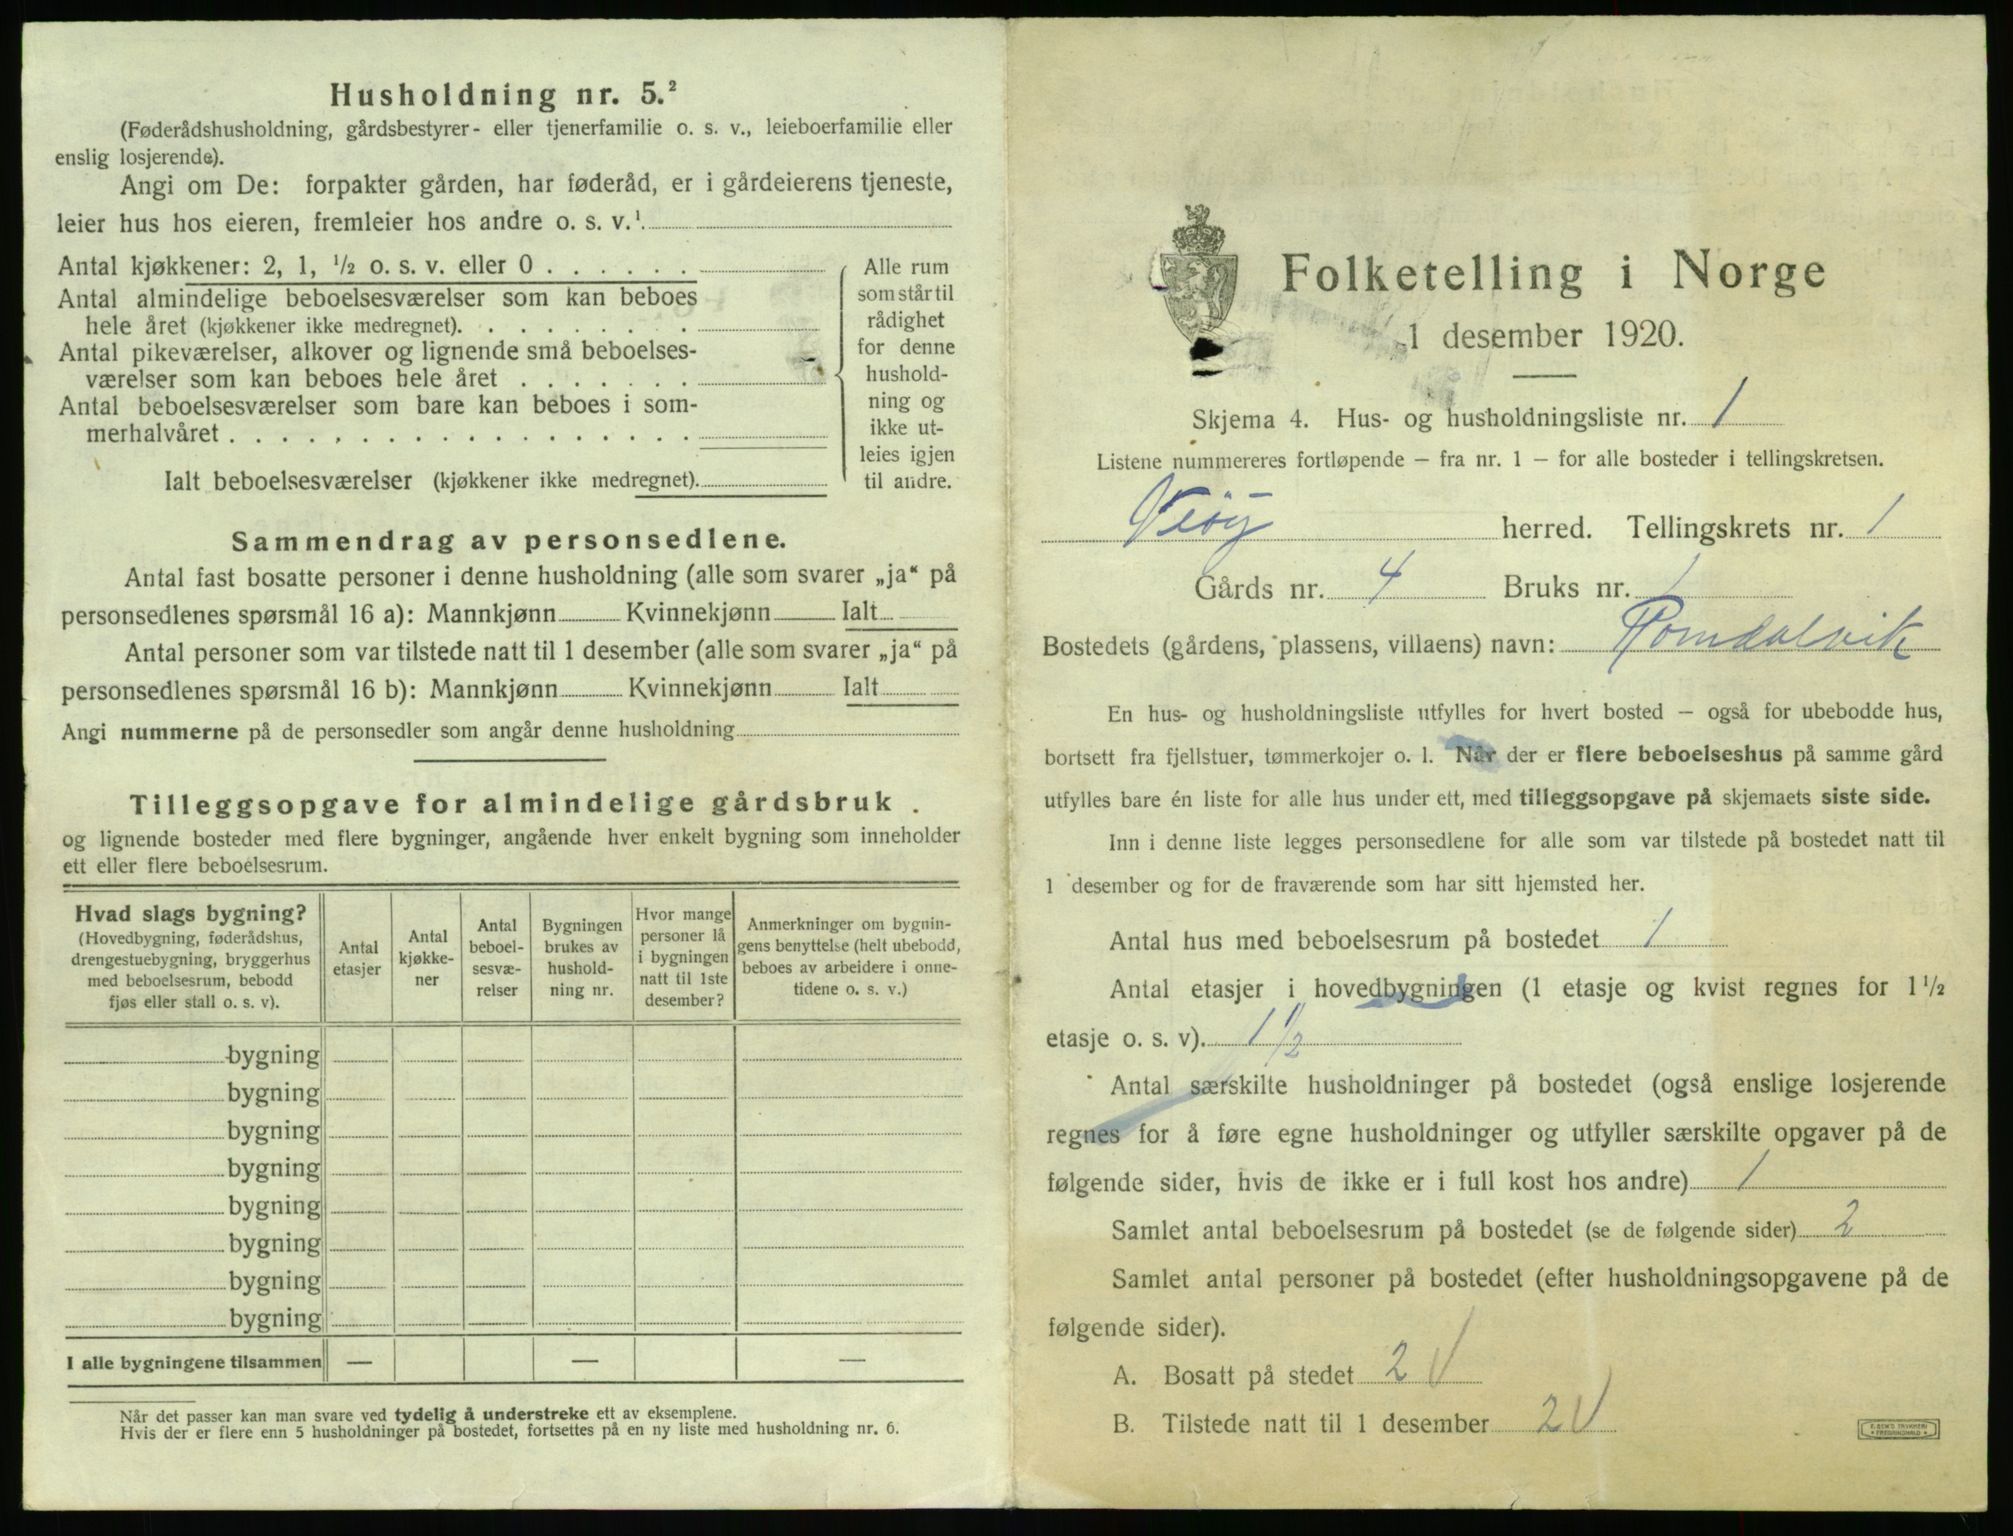 Husholdning nr. 5.²
(Føderådshusholdning, gårdsbestyrer- eller tjenerfamilie o. s. v., leieboerfamilie eller
enslig losjerende).
Angi om De: forpakter gården, har føderåd, er i gårdeierens tjeneste,
leier hus hos eieren, fremleier hos andre o. s. v.¹
Antal kjøkkener: 2, 1, ½ o. s. v. eller 0 . . . . . .
Antal almindelige beboelsesværelser som kan beboes
hele året (kjøkkener ikke medregnet). . . . . . . .
Antal pikeværelser, alkover og lignende små beboelses-
værelser som kan beboes hele året . . . . . . .
Antal beboelsesværelser som bare kan beboes i som-
merhalvåret . . . . . . . . . . . . . . . . . .
Ialt beboelsesværelser (kjøkkener ikke medregnet).
Alle rum
som står til
rådighet
for denne
hushold-
ning og
ikke ut-
leies igjen
til andre.
Sammendrag av personsedlene.
Antal fast bosatte personer i denne husholdning (alle som svarer „ja“ på
personsedlenes spørsmål 16 a): Mannkjønn Kvinnekjønn Ialt
Antal personer som var tilstede natt til 1 desember (alle som svarer „ja“ på
personsedlenes spørsmål 16 b): Mannkjønn Kvinnekjønn Ialt
Angi nummerne på de personsedler som angår denne husholdning
Tilleggsopgave for almindelige gårdsbruk .
og lignende bosteder med flere bygninger, angående hver enkelt bygning som inneholder
ett eller flere beboelsesrum.
Hvad slags bygning?
(Hovedbygning, føderådshus,
drengestuebygning, bryggerhus
med beboelsesrum, bebodd
fjøs eller stall o. s. v).
Antal
etasjer
Antal
kjøkke-
ner
Antal
beboel-
sesvæ-
relser
Bygningen
brukes av
hushold-
ning nr.
Hvor mange
personer lå
i bygningen
natt til 1ste
desember?
Anmerkninger om bygnin-
gens benyttelse (helt ubebodd,
beboes av arbeidere i onne-
tidene o. s. v.)
bygning
bygning
bygning
bygning
bygning
bygning
bygning
bygning
I alle bygningene tilsammen — — —
Når det passer kan man svare ved tydelig å understreke ett av eksemplene.
Hvis der er flere enn 5 husholdninger på bostedet, fortsettes på en ny liste med husholdning nr. 6.
Folketelling i Norge
1 desember 1920.
Skjema 4. Hus- og husholdningsliste nr. 1
Listene nummereres fortløpende — fra nr. 1 — for alle bosteder i tellingskretsen.
Veøy herred. Tellingskrets nr. 1
Gårds nr. 4 Bruks nr. 1
Bostedets (gårdens, plassens, villaens) navn: Romdalsvik
En hus- og husholdningsliste utfylles for hvert bosted — også for ubebodde hus,
bortsett fra fjellstuer, tømmerkojer o. l. Når der er flere beboelseshus på samme gård
utfylles bare én liste for alle hus under ett, med tilleggsopgave på skjemaets siste side.
Inn i denne liste legges personsedlene for alle som var tilstede på bostedet natt til
1 desember og for de fraværende som har sitt hjemsted her.
Antal hus med beboelsesrum på bostedet 1
Antal etasjer i hovedbygningen (1 etasje og kvist regnes for 1½
etasje o. s. v). 1½
Antal særskilte husholdninger på bostedet (også enslige losjerende
regnes for å føre egne husholdninger og utfyller særskilte opgaver på de
følgende sider, hvis de ikke er i full kost hos andre) 1
Samlet antal beboelsesrum på bostedet (se de følgende sider) 2
Samlet antal personer på bostedet (efter husholdningsopgavene på de
følgende sider).
A. Bosatt på stedet 2 V
B. Tilstede natt til 1 desember 2 V